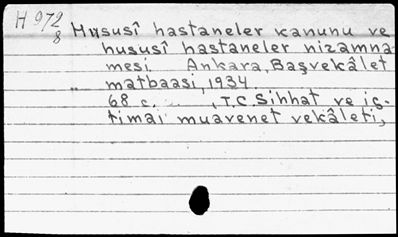 H 972
8
Hususî hastaneler kanunu ve
hususî hastaneler nizamna
mesi. Ankara, Başvekâlet
matbaasi, 1934
68 c. , T.C. Sihhat ve iç-
timaî muavenet vekâleti,